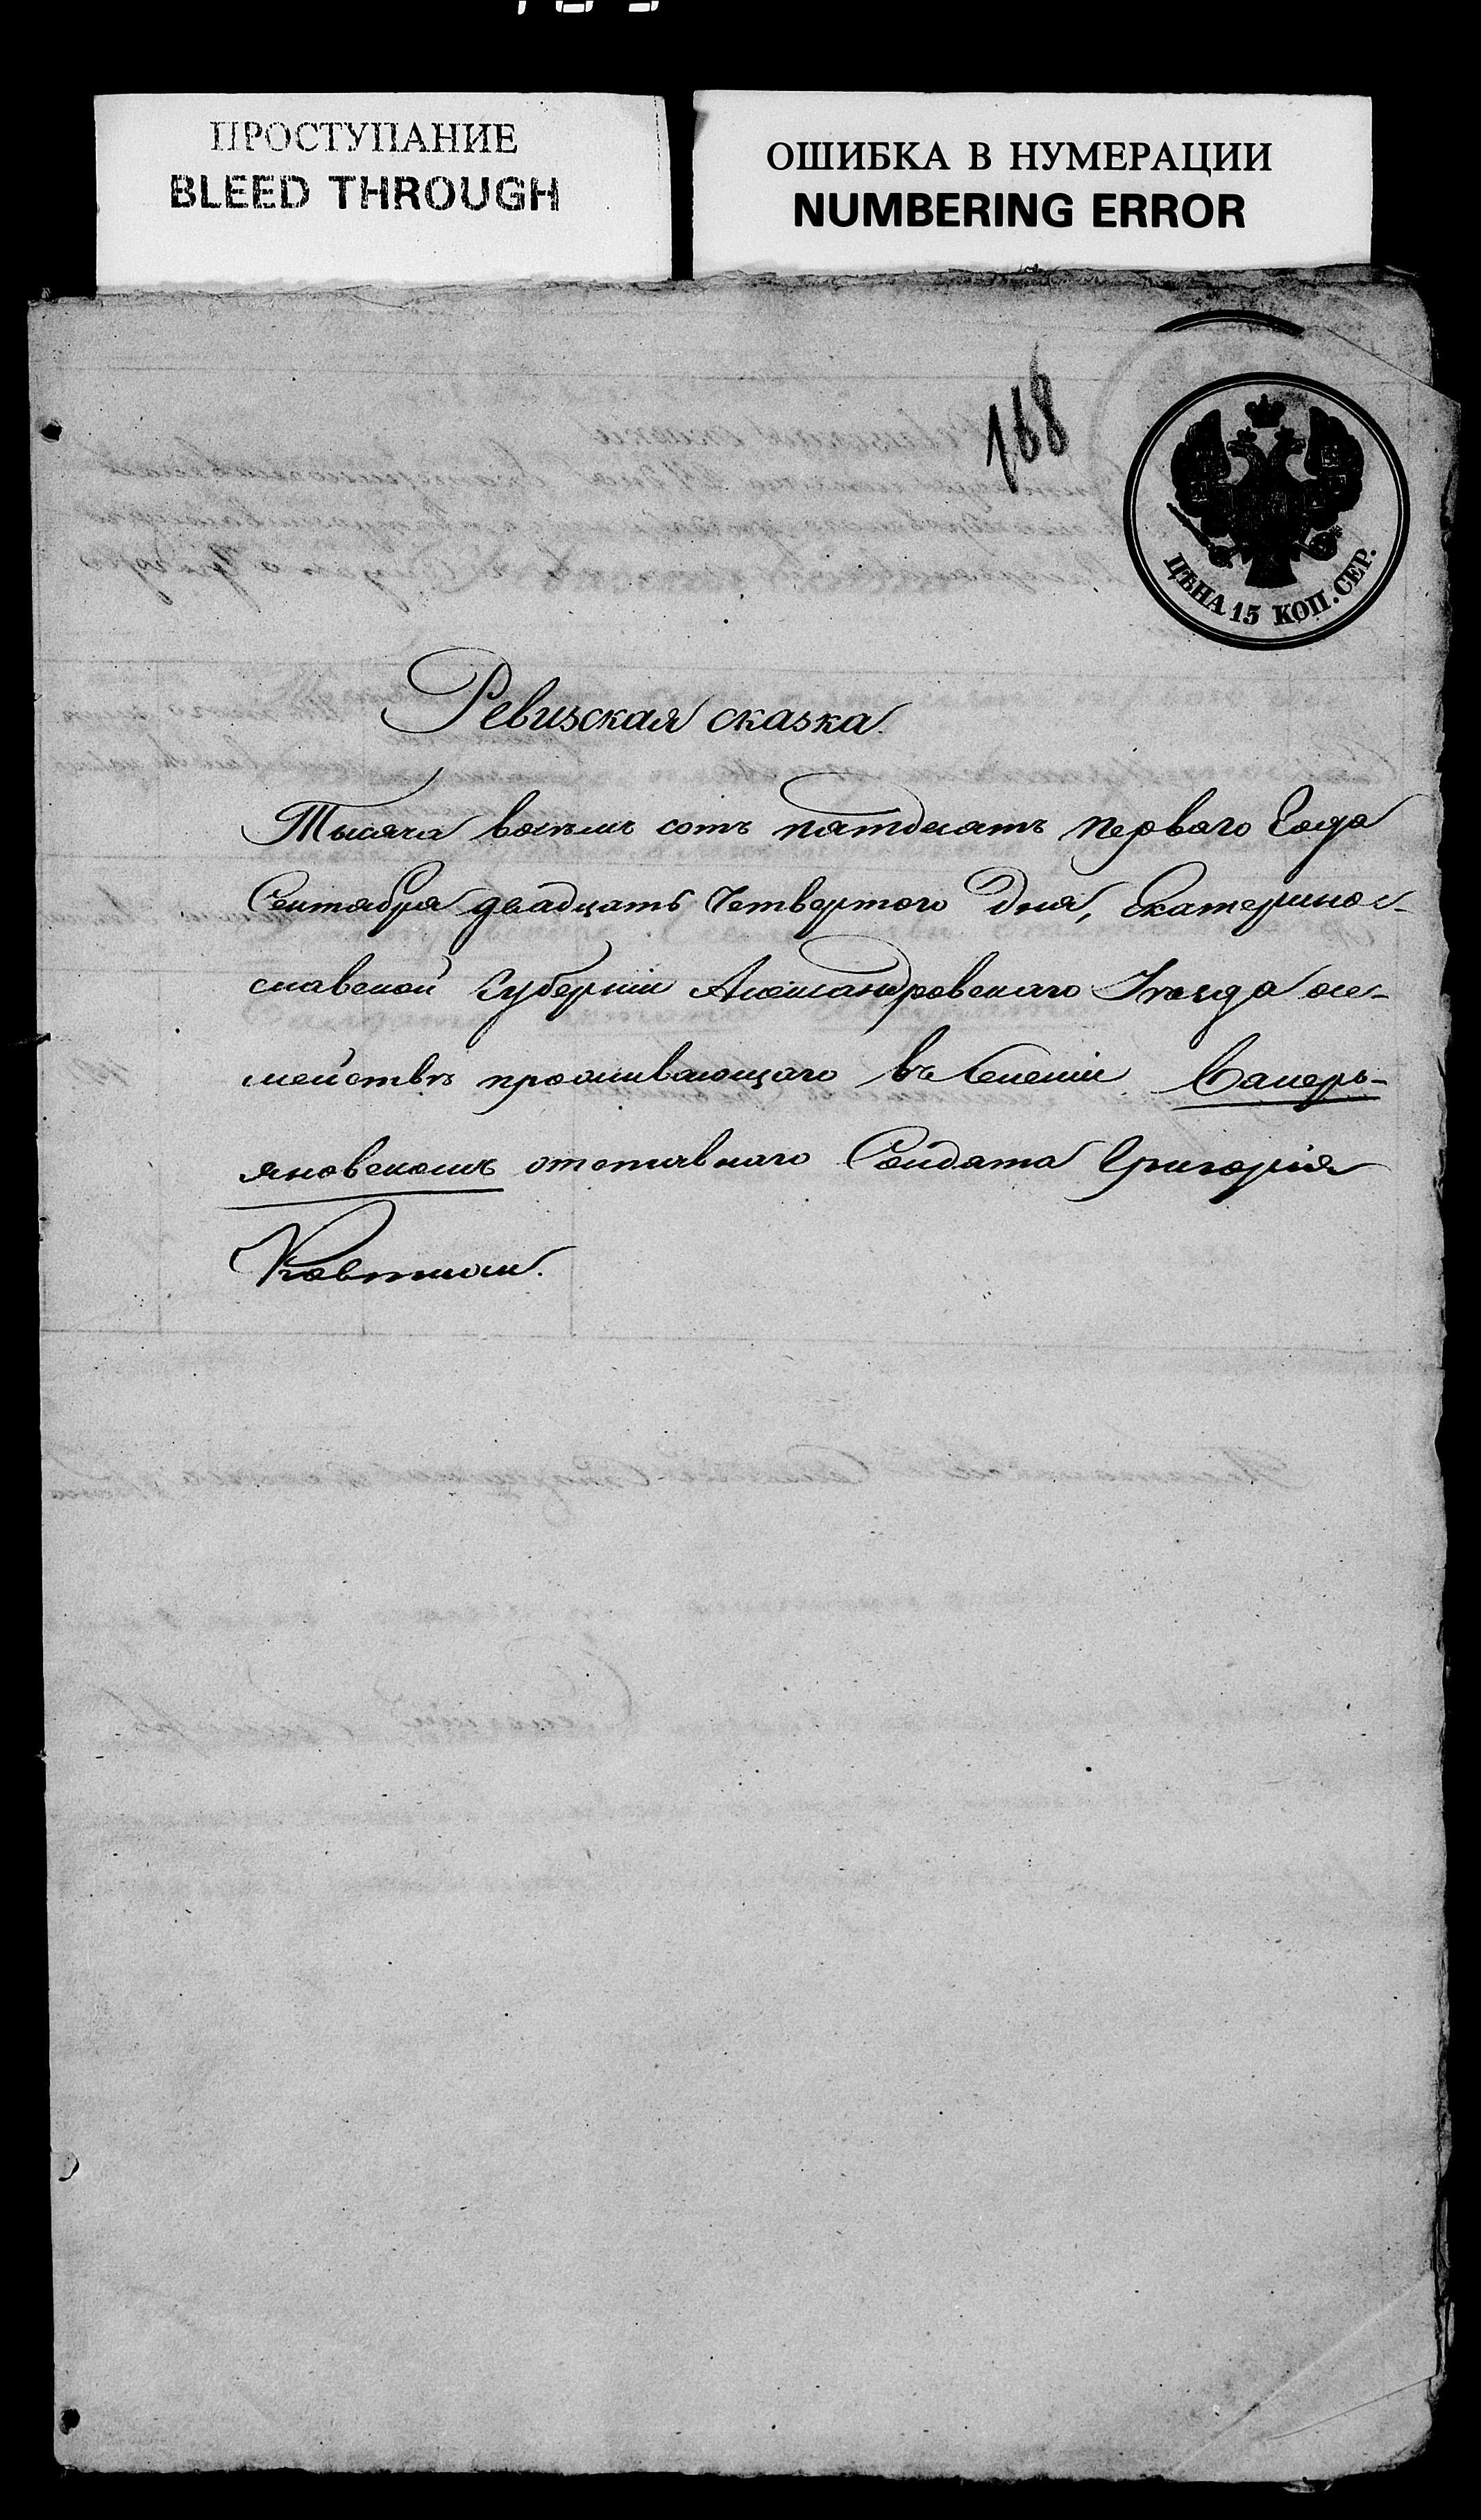 ПРОСТУПАНИЕ
BLEED THROUGH
ОШИБКА В НУМЕРАЦИИ
NUMBERING ERROR
168
ЦѢНА 15 КОП. СЕР.
Ревизская сказка.
Тысяча восемь сотъ пятдесятъ первого Года
Сентября двадцать Четвертого Дня, Екатеринос-
лавской Губерніи Александровскаго Уезда о се-
мействѣ проживающаго въ Селеніи Валерь-
яновскомъ отставнаго Солдата Григорія